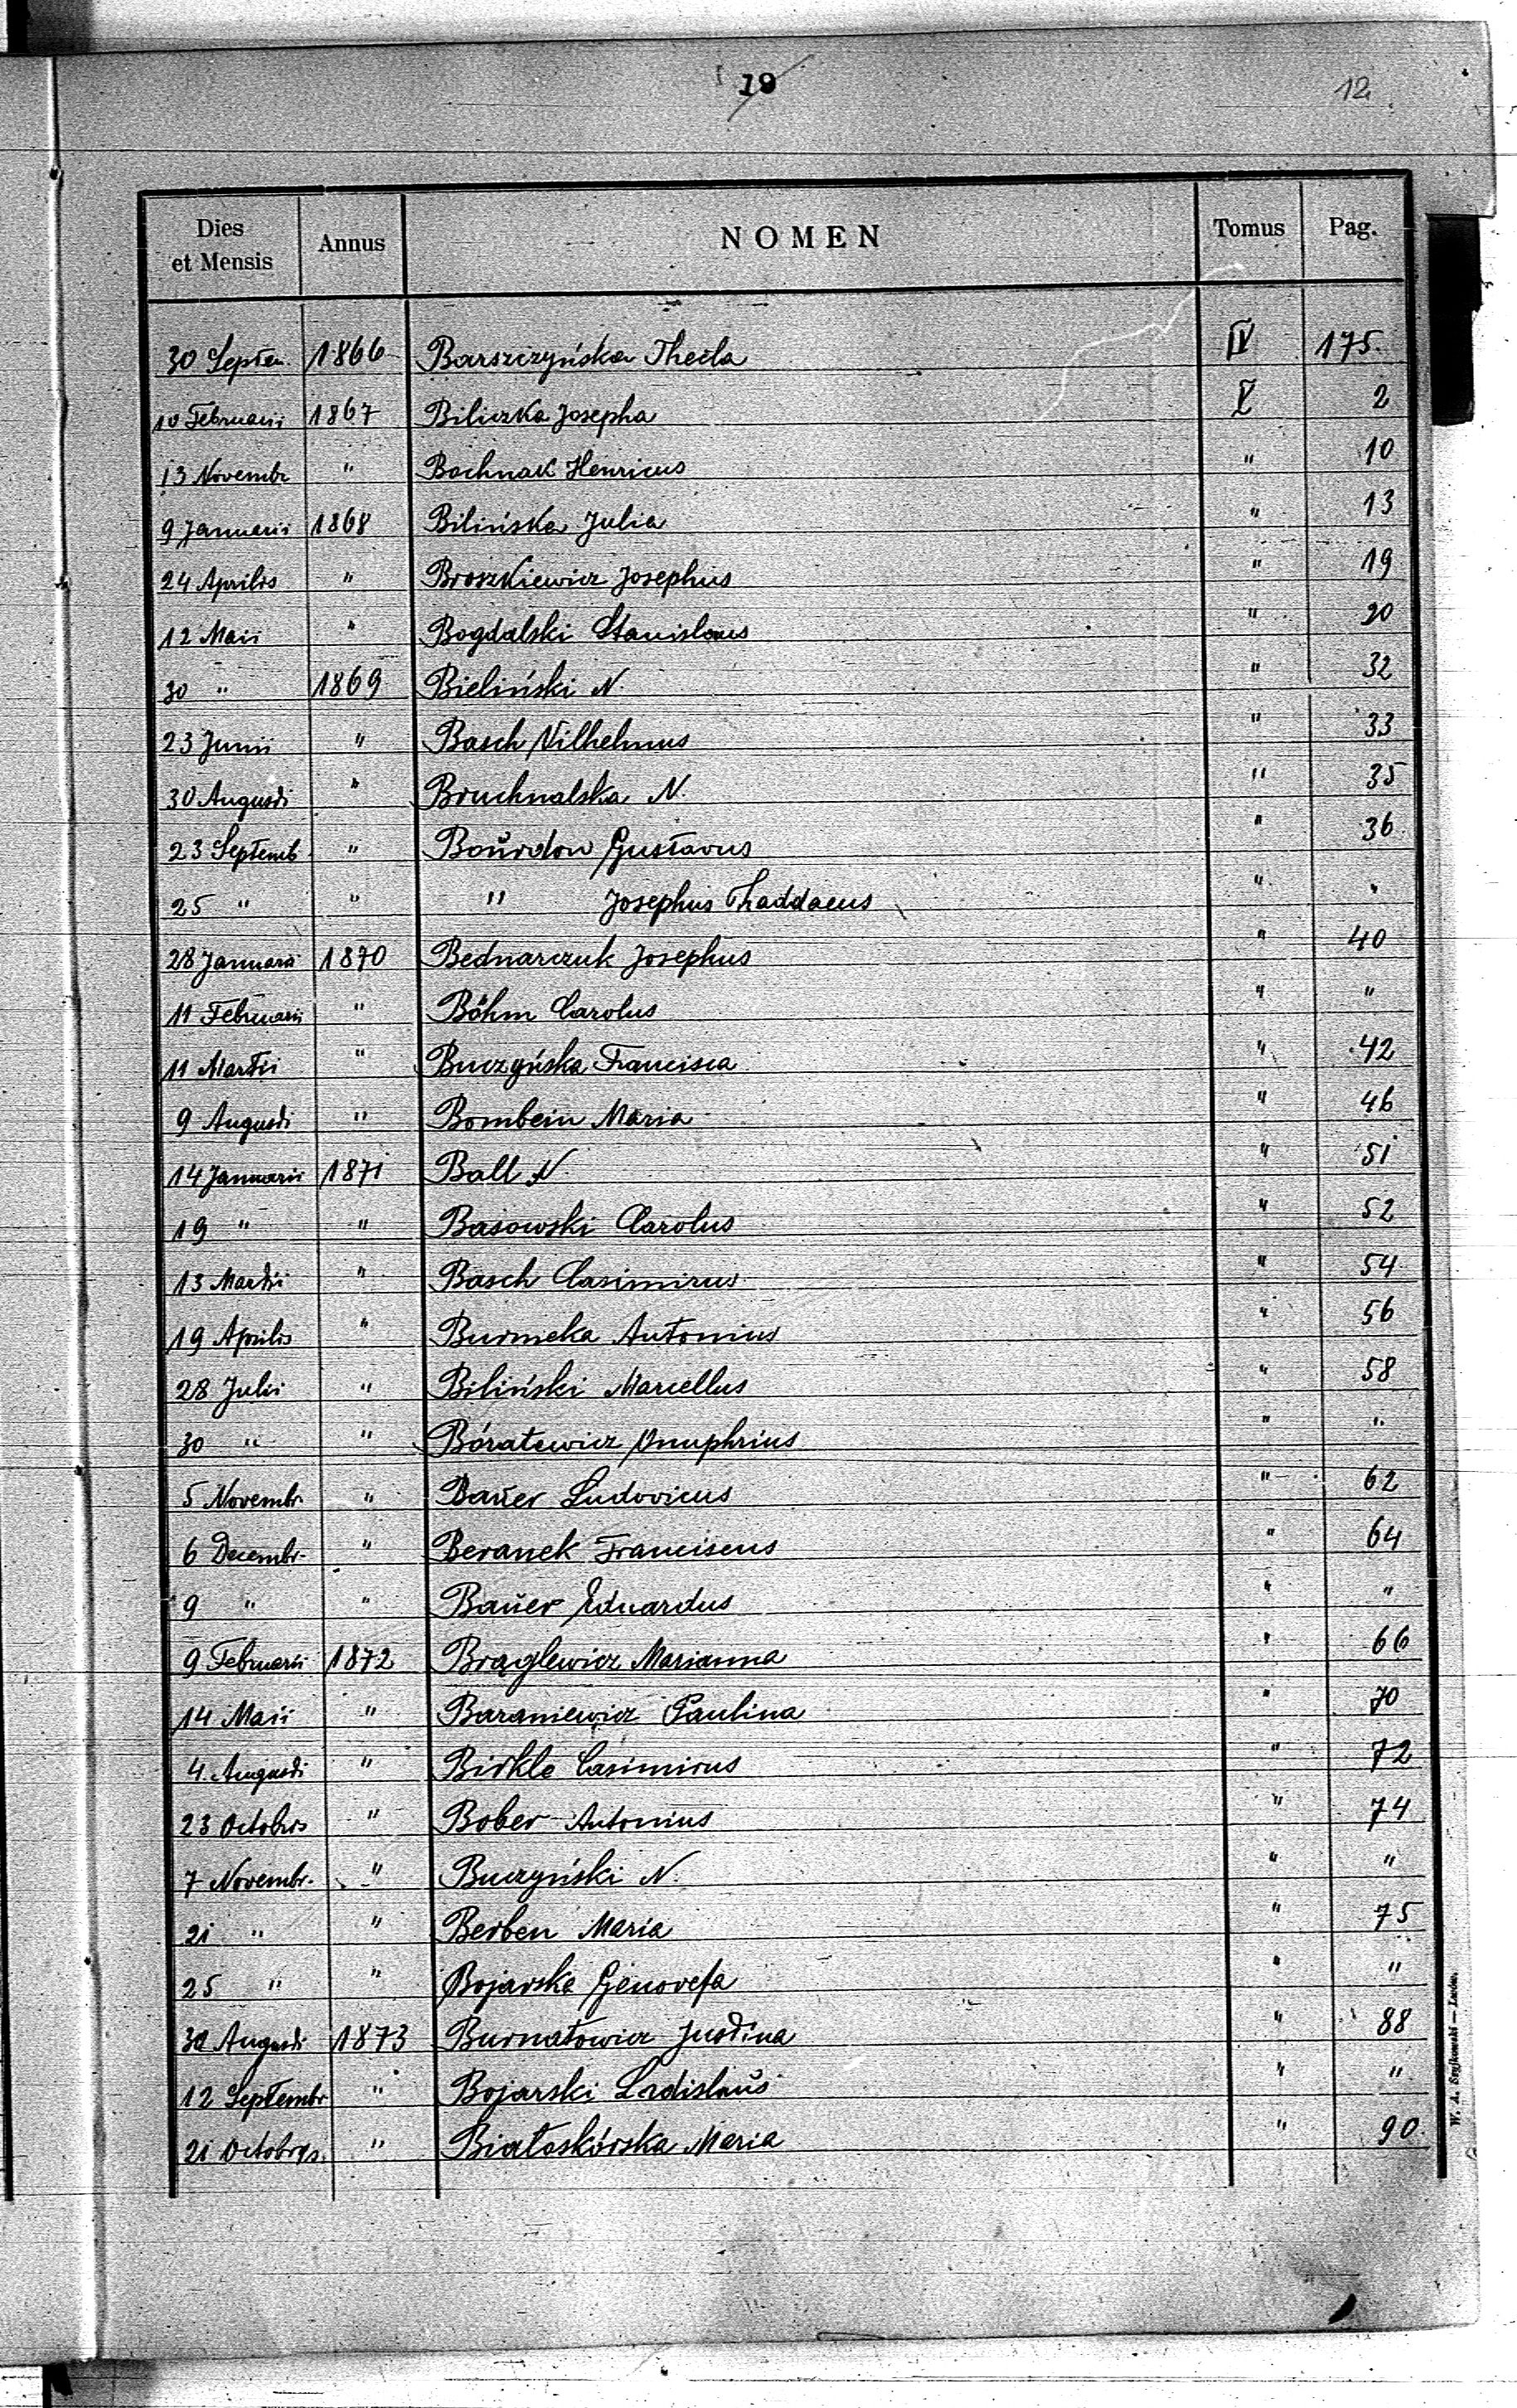 19 12
Dies et Mensis Annus NOMEN Tomus Pag.
30 Septem. 1866 Barszczyńska Thecla IV 175.
10 Februarii 1867 Biliczka Josepha V 2
13 Novembr. " Bochnak Henricus " 10
9 Januarii 1868 Bilińska Julia " 13
24 Aprilis " Broszkiewicz Josephus " 19
12 Maii " Bogdalski Stanislaus " 20
30 " 1869 Bieliński N. " 32
23 Junii " Basch Vilhelmus " 33
30 Augusti " Bruchnalska N. " 35
23 Septemb. " Boŭrdon Gustavus " 36
25 " " " Josephus Thaddaeus " "
28 Januarii 1870 Bednarczuk Josephus " 40
11 Februarii " Böhm Carolus " "
11 Martii " Buczyńska Francisca " 42
9 Augusti " Bombein Maria " 46
14 Januarii 1871 Ball N " 51
19 " " Basowski Carolus " 52
13 Martii " Basch Casimirus " 54
19 Aprilis " Burmeka Antonius " 56
28 Julii " Biliński Marcellus " 58
30 " " Bóratewicz Onuphrius " "
5 Novembr. " Baŭer Ludovicus " 62
6 Decembr. " Beranek Franciscus " 64
9 " " Baŭer Eduardus " "
9 Februarii 1872 Brąglewicz Marianna " 66
14 Maii " Baraniewicz Paulina " 70
4. Augusti " Birkle Casimirus " 72
23 Octobris " Bober Antonius " 74
7 Novembr. " Buczyński N. " "
21 " " Berben Maria " 75
25 " " Bojarska Genovefa " "
30 Augusti 1873 Burnatowicz Justina " 88
12 Septembr. " Bojarski Ladislaŭs " "
21 Octobris. " Białoskórska Maria " 90.
W. A. Szyjkowski — Lwów.